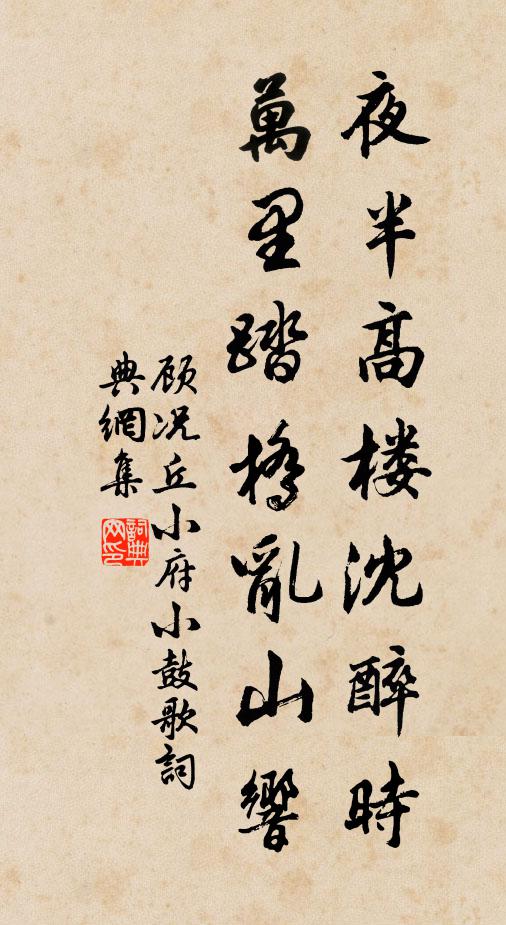 夜半高楼沈醉時
萬里踏橋亂山響
顾况丘小府小鼓歌詞
典網集
詞典网印